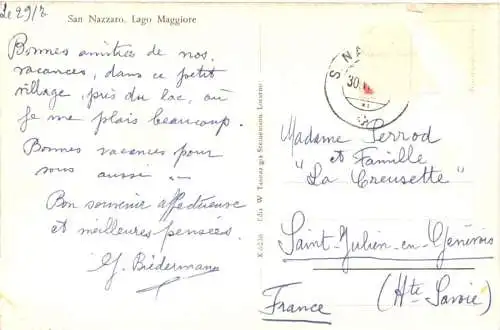 Le 29/7
San Nazzaro, Lago Maggiore
Bonnes amitiés de nos
vacances, dans ce petit
village, près du lac, où
je me plais beaucoup.
Bonnes vacances pour
vous aussi —
Bon souvenir affectueuse
et meilleures pensées.
G. Biedermann
Madame Perrod
et Famille
"La Creusette"
Saint-Julien-en-Genevois
(Hte Savoie)
France